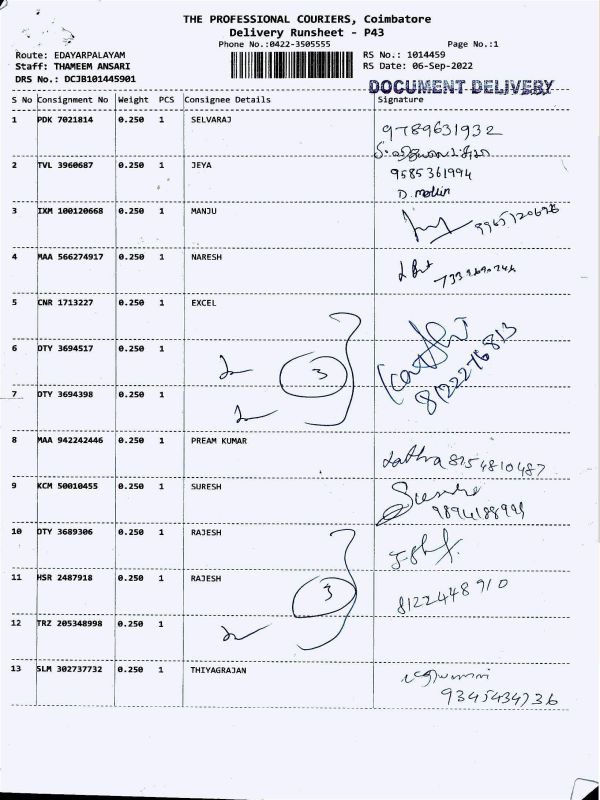 THE PROFESSIONAL COURIERS, Coimbatore
Delivery Runsheet - P43
Phone No.:0422-3505555
Page No.:1
Route: EDAYARPALAYAM
RS No.: 1014459
Staff: THAMEEM ANSARI
RS Date: 06-Sep-2022
DRS No.: DCJB101445901
DOCUMENT DELIVERY
S No Consignment No Weight PCS Consignee Details Signature
1 PDK 7021814 0.250 1 SELVARAJ
9789631932
2 TVL 3960687 0.250 1 JEYA
9585361994
3 IXM 100120668 0.250 1 MANJU
4 MAA 566274917 0.250 1 NARESH
5 CNR 1713227 0.250 1 EXCEL
6 DTY 3694517 0.250 1
3
8122276813
7 DTY 3694398 0.250 1
8 MAA 942242446 0.250 1 PREAM KUMAR
Lathra 8154810487
9 KCM 50010455 0.250 1 SURESH
10 DTY 3689306 0.250 1 RAJESH
11 HSR 2487918 0.250 1 RAJESH
3
8122448910
12 TRZ 205348998 0.250 1
13 SLM 302737732 0.250 1 THIYAGRAJAN
9345434736